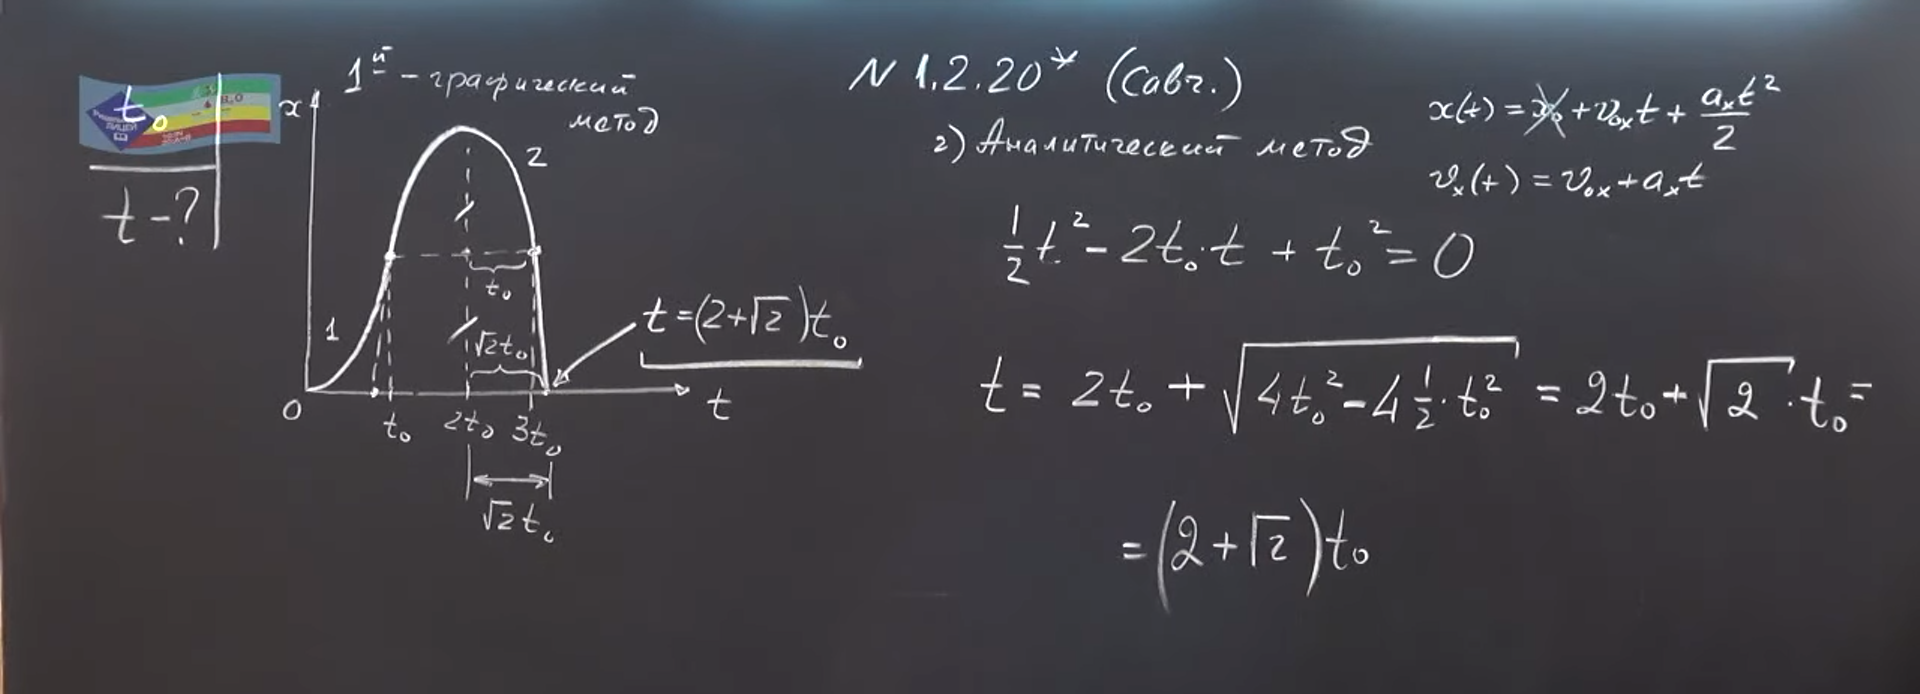 t₀
t - ?
1й - графический
метод
x
2
1
t₀
√2t₀
0
t₀ 2t₀ 3t₀
t
√2t₀
t = (2+√2)t₀
N 1.2.20* (Савч.)
2) Аналитический метод
x(t) = x₀ + v₀ₓt + aₓt²/2
vₓ(t) = v₀ₓ + aₓt
1/2 t² - 2t₀·t + t₀² = 0
t = 2t₀ + √(4t₀² - 4 1/2·t₀²) = 2t₀ + √2·t₀ =
= (2+√2)t₀